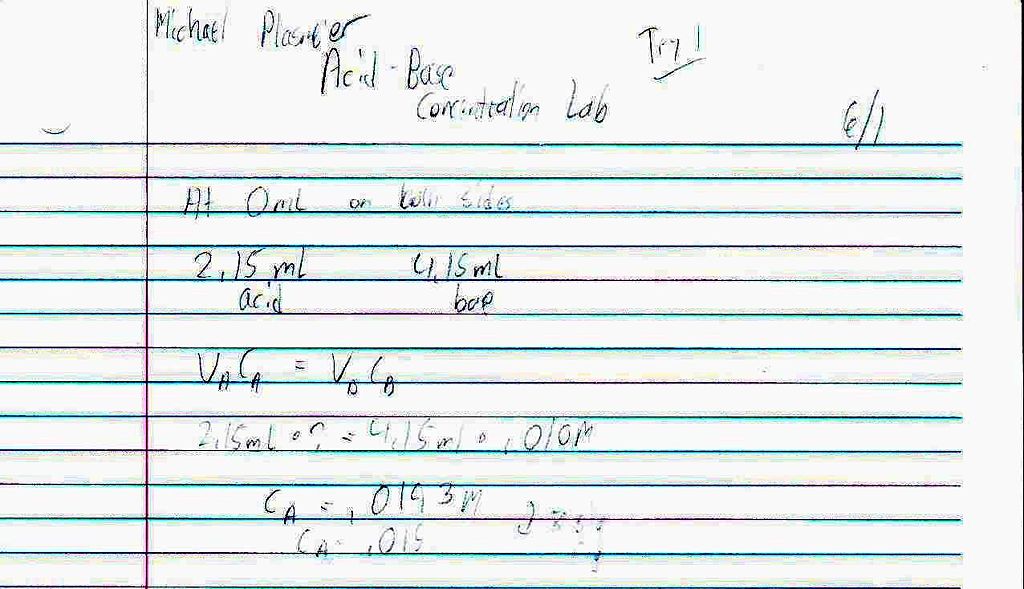 Michael Plasmeier
Try 1
Acid-Base
Concentration Lab
6/1
At 0mL on both sides
2.15 mL 4.15 mL
acid base
VA CA = VB CB
2.15mL • ? = 4.15 mL • .010M
CA = .0193M
CA = .015